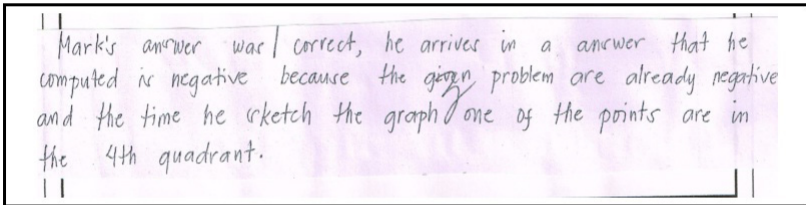 Mark's answer was correct, he arrives in a answer that he
computed is negative because the given problem are already negative
and the time he sketch the graph one of the points are in
the 4th quadrant.